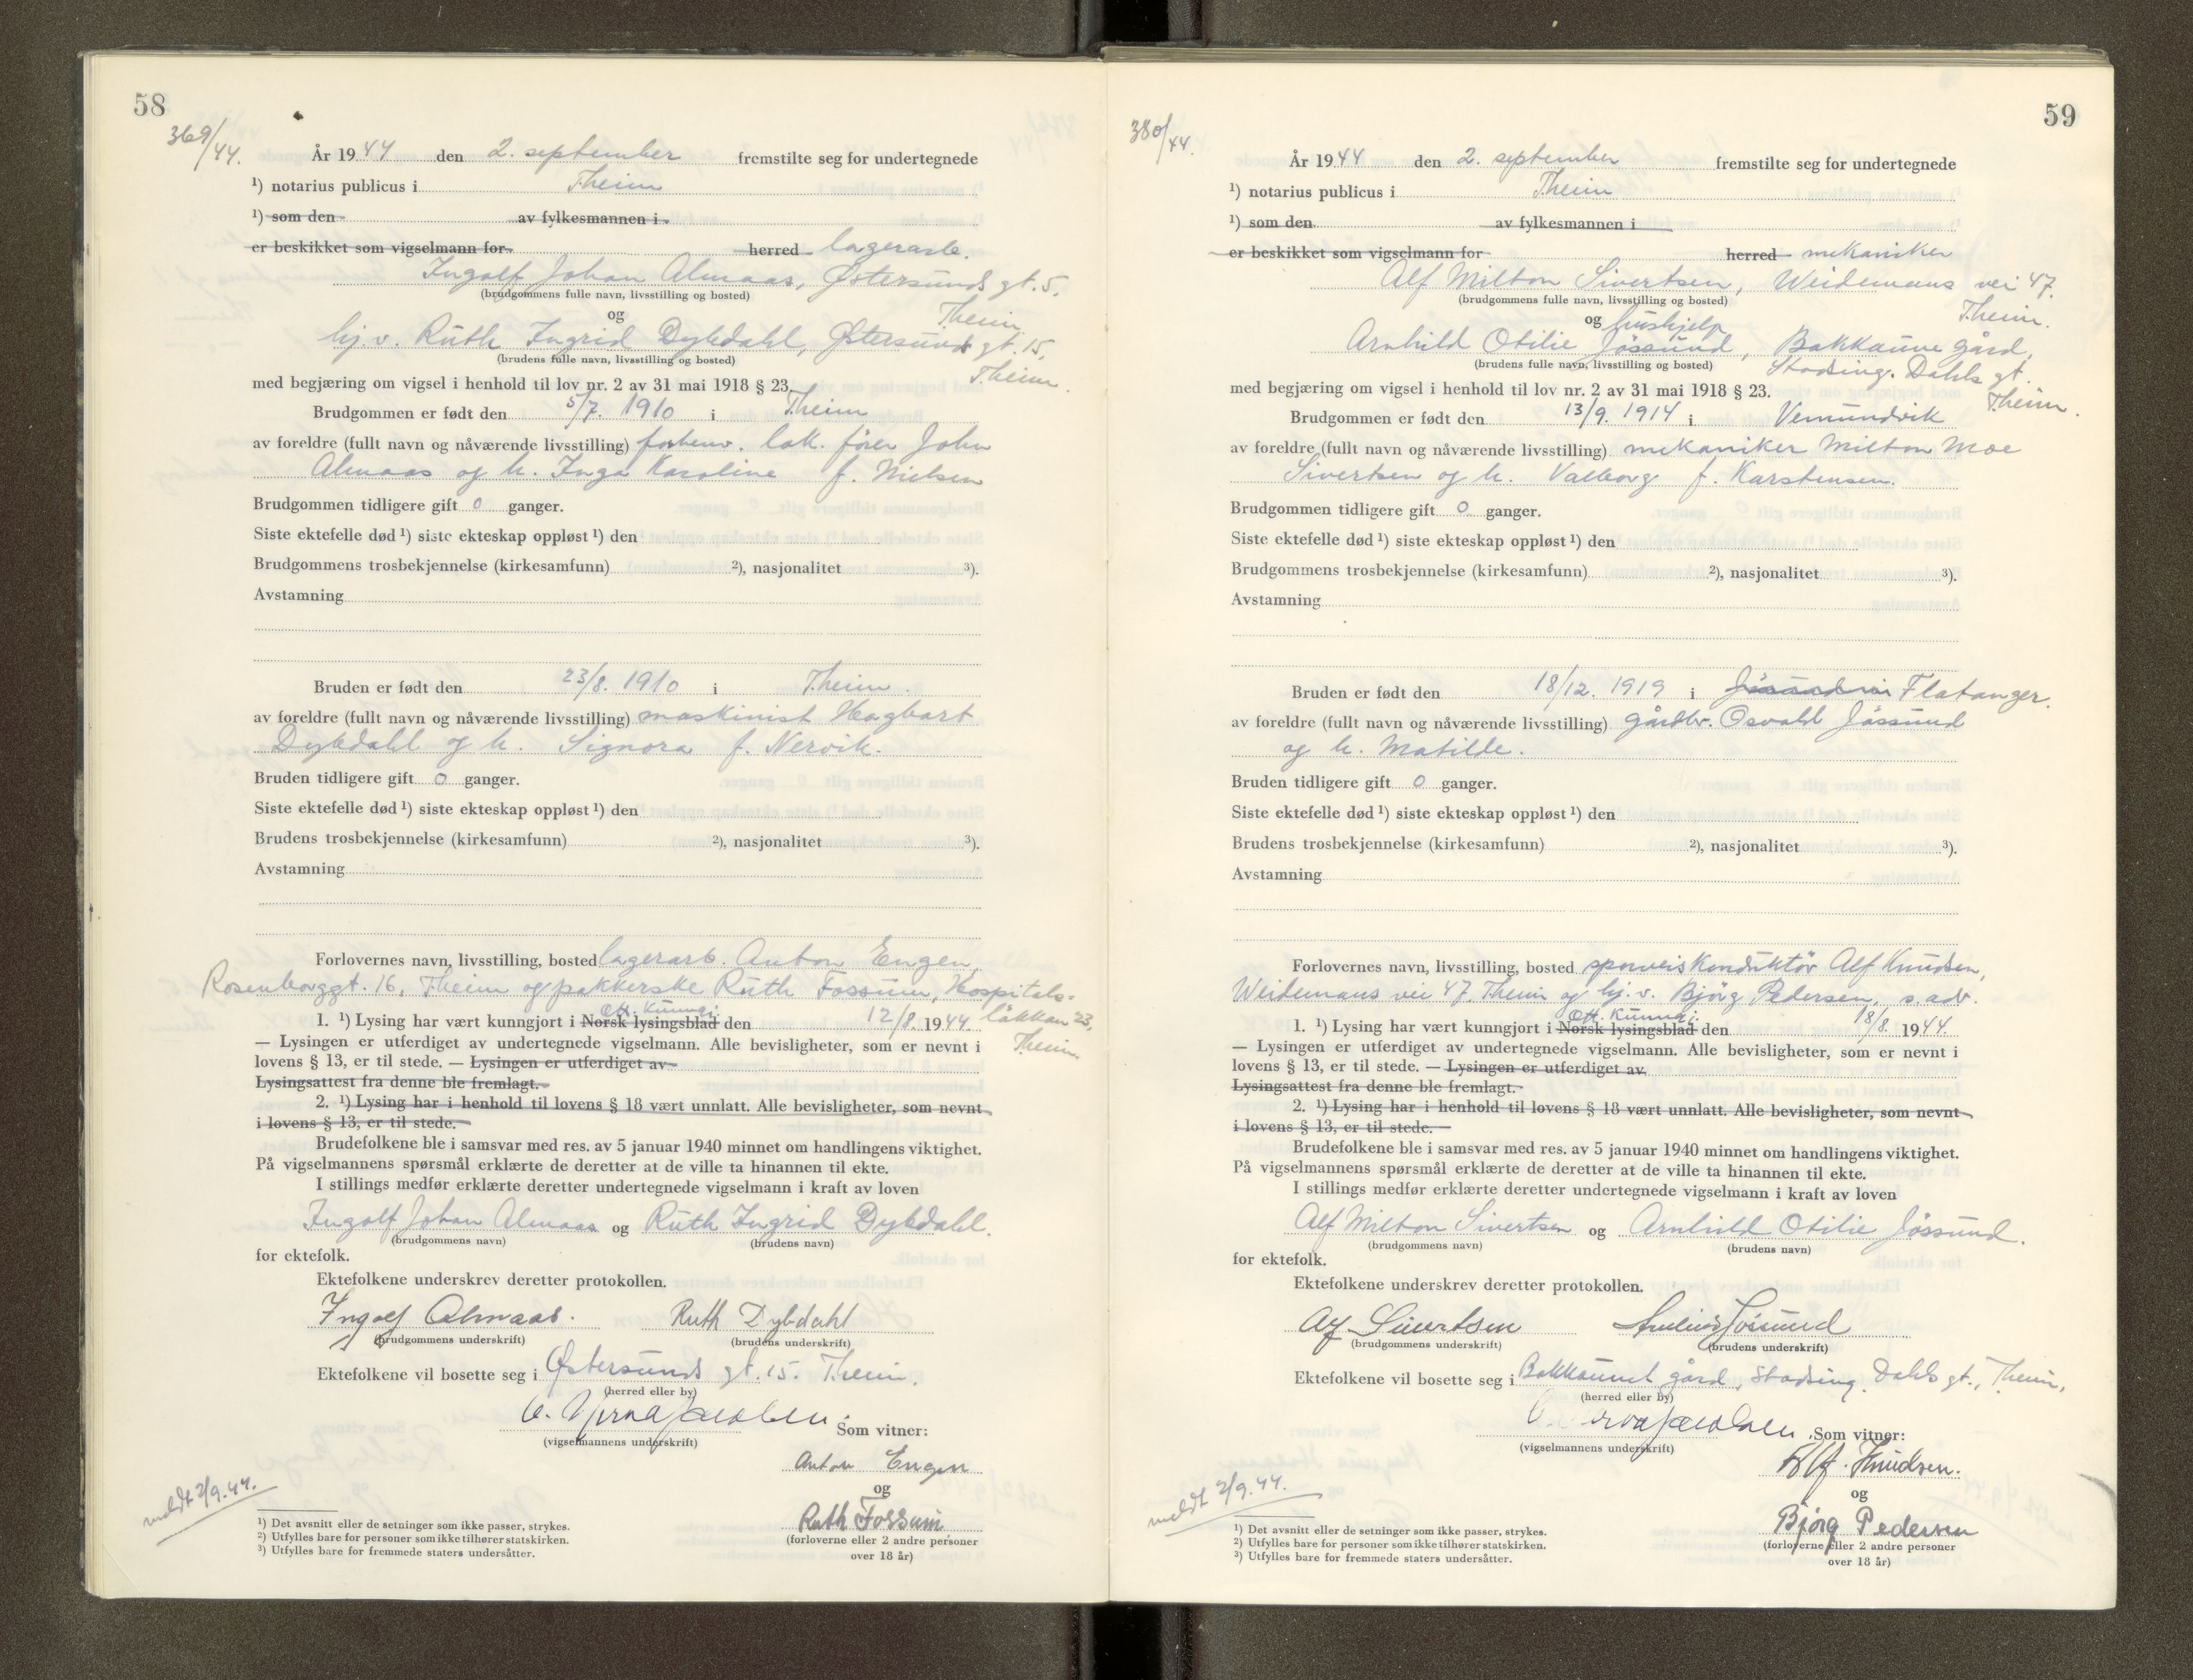 58
369/44.
År 1944 den 2. september fremstilte seg for undertegnede
¹) notarius publicus i Theim
¹) som den av fylkesmannen i
er beskikket som vigselmann for herred lagerarb.
Ingolf Johan Almaas, Østersunds gt. 5,
(brudgommens fulle navn, livsstilling og bosted)
Theim
og
hj.v. Ruth Ingrid Dybdahl, Østersunds gt. 15,
(brudens fulle navn, livsstilling og bosted)
Theim.
med begjæring om vigsel i henhold til lov nr. 2 av 31 mai 1918 § 23.
Brudgommen er født den 5/7. 1910 i Theim
av foreldre (fullt navn og nåværende livsstilling) forhenv. lok. fører John
Almaas og h. Inga Karoline f. Nielsen
Brudgommen tidligere gift 0 ganger.
Siste ektefelle død ¹) siste ekteskap oppløst ¹) den
Brudgommens trosbekjennelse (kirkesamfunn) ²), nasjonalitet ³).
Avstamning
Bruden er født den 23/8. 1910 i Theim.
av foreldre (fullt navn og nåværende livsstilling) maskinist Hagbart
Dybdahl og h. Signora f. Nervik.
Bruden tidligere gift 0 ganger.
Siste ektefelle død ¹) siste ekteskap oppløst ¹) den
Brudens trosbekjennelse (kirkesamfunn) ²), nasjonalitet ³).
Avstamning
Forlovernes navn, livsstilling, bosted lagerarb. Anton Engen,
Rosenborggt. 16, Theim og pakkerske Ruth Fossum, Hospitals-
løkkan 23,
Off. Kunngj.
1. ¹) Lysing har vært kunngjort i Norsk lysingsblad den 12/8. 1944
Theim.
— Lysingen er utferdiget av undertegnede vigselmann. Alle bevisligheter, som er nevnt i
lovens § 13, er til stede. — Lysingen er utferdiget av
Lysingsattest fra denne ble fremlagt.
2. ¹) Lysing har i henhold til lovens § 18 vært unnlatt. Alle bevisligheter, som nevnt
i lovens § 13, er til stede.
Brudefolkene ble i samsvar med res. av 5 januar 1940 minnet om handlingens viktighet.
På vigselmannens spørsmål erklærte de deretter at de ville ta hinannen til ekte.
I stillings medfør erklærte deretter undertegnede vigselmann i kraft av loven
Ingolf Johan Almaas og Ruth Ingrid Dybdahl.
(brudgommens navn) (brudens navn)
for ektefolk.
Ektefolkene underskrev deretter protokollen.
Ingolf Almaas. Ruth Dybdahl
(brudgommens underskrift) (brudens underskrift)
Ektefolkene vil bosette seg i Østersunds gt. 15. Theim.
(herred eller by)
(vigselmannens underskrift)
Som vitner:
Anton Engen
og
Ruth Fossum
(forloverne eller 2 andre personer
over 18 år)
meldt 2/9.44.
¹) Det avsnitt eller de setninger som ikke passer, strykes.
²) Utfylles bare for personer som ikke tilhører statskirken.
³) Utfylles bare for fremmede staters undersåtter.
59
380/44.
År 1944 den 2. september fremstilte seg for undertegnede
¹) notarius publicus i Theim
¹) som den av fylkesmannen i
er beskikket som vigselmann for herred mekaniker
Alf Milton Sivertsen, Weidemans vei 47.
(brudgommens fulle navn, livsstilling og bosted)
Theim.
og hushjelp
Arnhild Otilie Jössund, Bakkaune gård,
(brudens fulle navn, livsstilling og bosted)
Stadsing. Dahls gt.
Theim.
med begjæring om vigsel i henhold til lov nr. 2 av 31 mai 1918 § 23.
Brudgommen er født den 13/9. 1914 i Vemundvik
av foreldre (fullt navn og nåværende livsstilling) mekaniker Milton Moe
Sivertsen og h. Valborg f. Karstensen.
Brudgommen tidligere gift 0 ganger.
Siste ektefelle død ¹) siste ekteskap oppløst ¹) den
Brudgommens trosbekjennelse (kirkesamfunn) ²), nasjonalitet ³).
Avstamning
Bruden er født den 18/12. 1919 i Flatanger.
av foreldre (fullt navn og nåværende livsstilling) gårdbr. Osvald Jössund
og h. Matilde.
Bruden tidligere gift 0 ganger.
Siste ektefelle død ¹) siste ekteskap oppløst ¹) den
Brudens trosbekjennelse (kirkesamfunn) ²), nasjonalitet ³).
Avstamning
Forlovernes navn, livsstilling, bosted sporveiskonduktör Alf Knudsen,
Weidemans vei 47 Theim og hj.v. Bjørg Pedersen, s. adr.
Off. Kunngj.
1. ¹) Lysing har vært kunngjort i Norsk lysingsblad den 18/8. 1944.
— Lysingen er utferdiget av undertegnede vigselmann. Alle bevisligheter, som er nevnt i
lovens § 13, er til stede. — Lysingen er utferdiget av
Lysingsattest fra denne ble fremlagt.
2. ¹) Lysing har i henhold til lovens § 18 vært unnlatt. Alle bevisligheter, som nevnt
i lovens § 13, er til stede.
Brudefolkene ble i samsvar med res. av 5 januar 1940 minnet om handlingens viktighet.
På vigselmannens spørsmål erklærte de deretter at de ville ta hinannen til ekte.
I stillings medfør erklærte deretter undertegnede vigselmann i kraft av loven
Alf Milton Sivertsen og Arnhild Otilie Jössund.
(brudgommens navn) (brudens navn)
for ektefolk.
Ektefolkene underskrev deretter protokollen.
Alf Sivertsen Arnhild Jössund
(brudgommens underskrift) (brudens underskrift)
Ektefolkene vil bosette seg i Bakkaunet gård, Stadsing. Dahls gt., Theim,
(herred eller by)
(vigselmannens underskrift)
Som vitner:
Alf. Knudsen.
og
Bjørg Pedersen
(forloverne eller 2 andre personer
over 18 år)
meldt 2/9.44.
¹) Det avsnitt eller de setninger som ikke passer, strykes.
²) Utfylles bare for personer som ikke tilhører statskirken.
³) Utfylles bare for fremmede staters undersåtter.